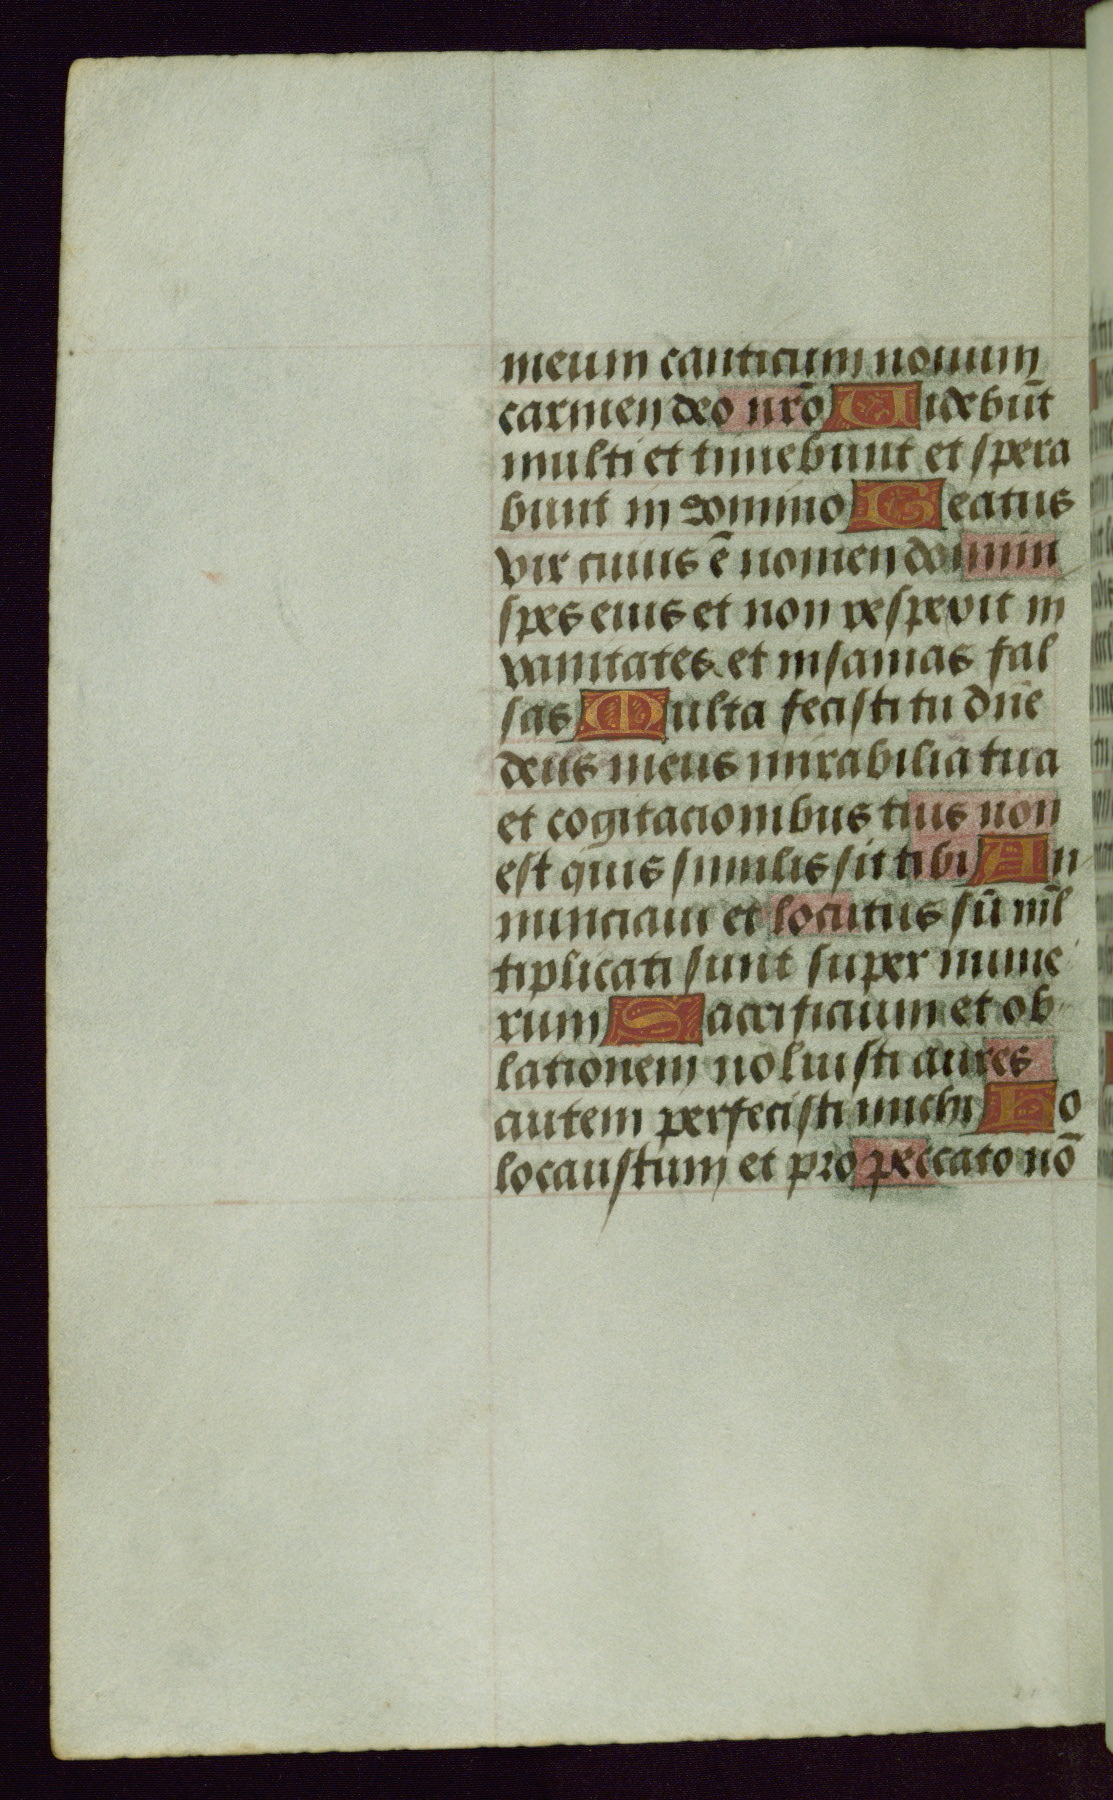 meum canticum nouum
carmen deo nr̄o Uidebūt
multi et timebunt et spera
bunt in domino Beatus
vir cuius ē nomen domini
spes eius et non respexit in
vanitates et insanias fal
sas Multa fecisti tu dn̄e
deus meus mirabilia tua
et cogitacionibus tuis non
est quis similis sit tibi An
nunciaui et locutus sū ml̄
tiplicati sunt super nume
rum Sacrificium et ob
lationem noluisti aures
autem perfecisti michi Ho
locaustum et pro peccato nō